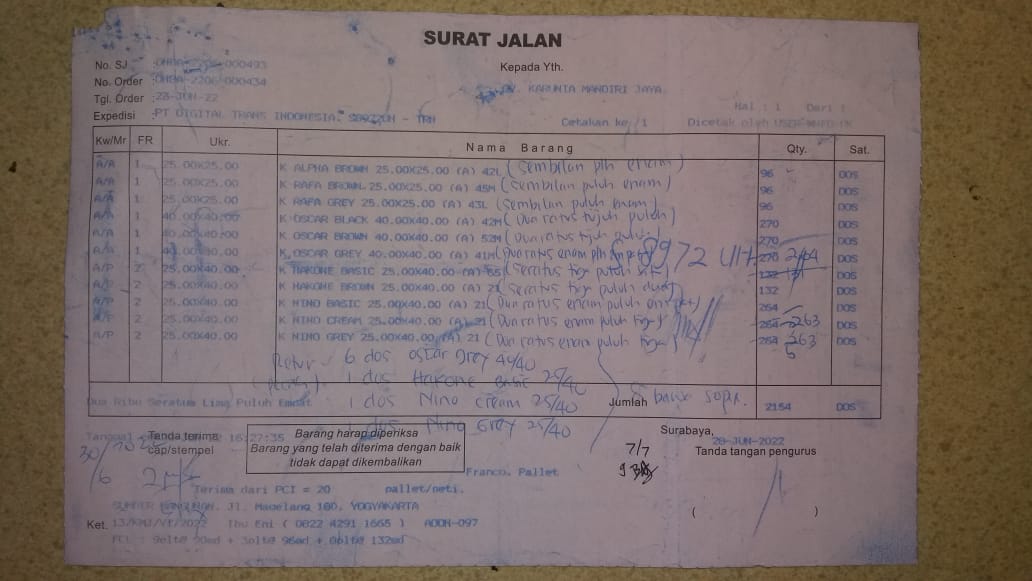 SURAT JALAN
Kepada Yth.
No. SJ : -2206-000493
No. Order : -2206-000434
Tgl. Order : 28-JUN-22
Expedisi : PT DIGITAL TRANS INDONESIA.
KARUNIA MANDIRI JAYA
Hal : 1 Dari 1
Cetakan ke / 1 Dicetak oleh
Kw/Mr FR Ukr. Nama Barang Qty. Sat.
A/A 1 25.00X25.00 K ALPHA BROWN 25.00X25.00 (A) 42L (Sembilan plh enam) 96 DOS
A/A 1 25.00X25.00 K RAFA BROWN 25.00X25.00 (A) 45M (Sembilan puluh enam) 96 DOS
A/A 1 25.00X25.00 K RAFA GREY 25.00X25.00 (A) 43L (Sembilan puluh enam) 96 DOS
A/A 1 40.00X40.00 K OSCAR BLACK 40.00X40.00 (A) 42M (Dua ratus tujuh puluh) 270 DOS
A/A 1 40.00X40.00 K OSCAR BROWN 40.00X40.00 (A) 52M (Dua ratus tujuh puluh) 270 DOS
A/A 1 40.00X40.00 K OSCAR GREY 40.00X40.00 (A) 41M (Dua ratus enam plh 8972 270 264 DOS
A/P 2 25.00X40.00 K HAKONE BASIC 25.00X40.00 (A) (Seratus tiga puluh 132 DOS
A/P 2 25.00X40.00 K HAKONE BROWN 25.00X40.00 (A) 21 (Seratus tiga puluh dua) 132 DOS
A/P 2 25.00X40.00 K NINO BASIC 25.00X40.00 (A) 21 (Dua ratus enam puluh 264 DOS
A/P 2 25.00X40.00 K NINO CREAM 25.00X40.00 (A) 21 (Dua ratus enam puluh tiga) 264 263 DOS
A/P 2 25.00X40.00 K NINO GREY 25.00X40.00 (A) 21 (Dua ratus enam puluh tiga) 264 263 DOS
Retur 6 dos oscar Grey 40/40
1 dos Hakone Basic 25/40
Dua Ribu Seratus Lima Puluh Empat 1 dos Nino cream 25/40 Jumlah 5 bawa sopir. 2154 DOS
1 dos Nino Grey 25/40
Tanggal 16:27:35
Tanda terima
cap/stempel
30/6
Barang harap diperiksa
Barang yang telah diterima dengan baik
tidak dapat dikembalikan
7/7
Surabaya,
28-JUN-2022
Tanda tangan pengurus
Franco. Pallet
Terima dari PCI = 20 pallet/peti.
SUMBER BANGUNAN. Jl. Magelang 100, YOGYAKARTA
Ket. 13/KMJ/VI/2022 Ibu Eni ( 0822 4291 1665 ) AOON-097
( )